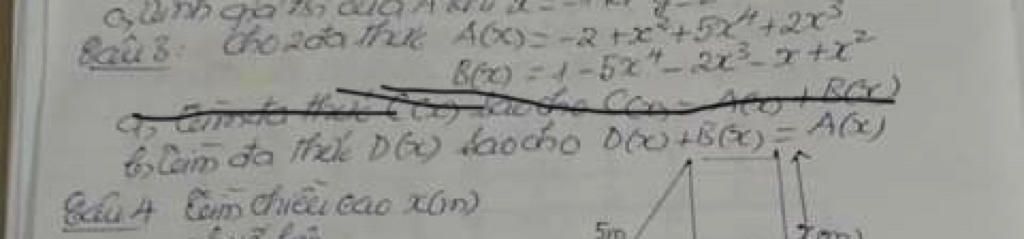 Câu 3: Cho 2 đa thức A(x) = -2 + x² + 5x⁴ + 2x³
B(x) = 1 - 5x⁴ - 2x³ - x + x²
a, Tìm đa thức C(x) sao cho C(x) = A(x) + B(x)
b, Tìm đa thức D(x) sao cho D(x) + B(x) = A(x)
Câu 4 Tìm chiều cao x(m)
5m x(m)